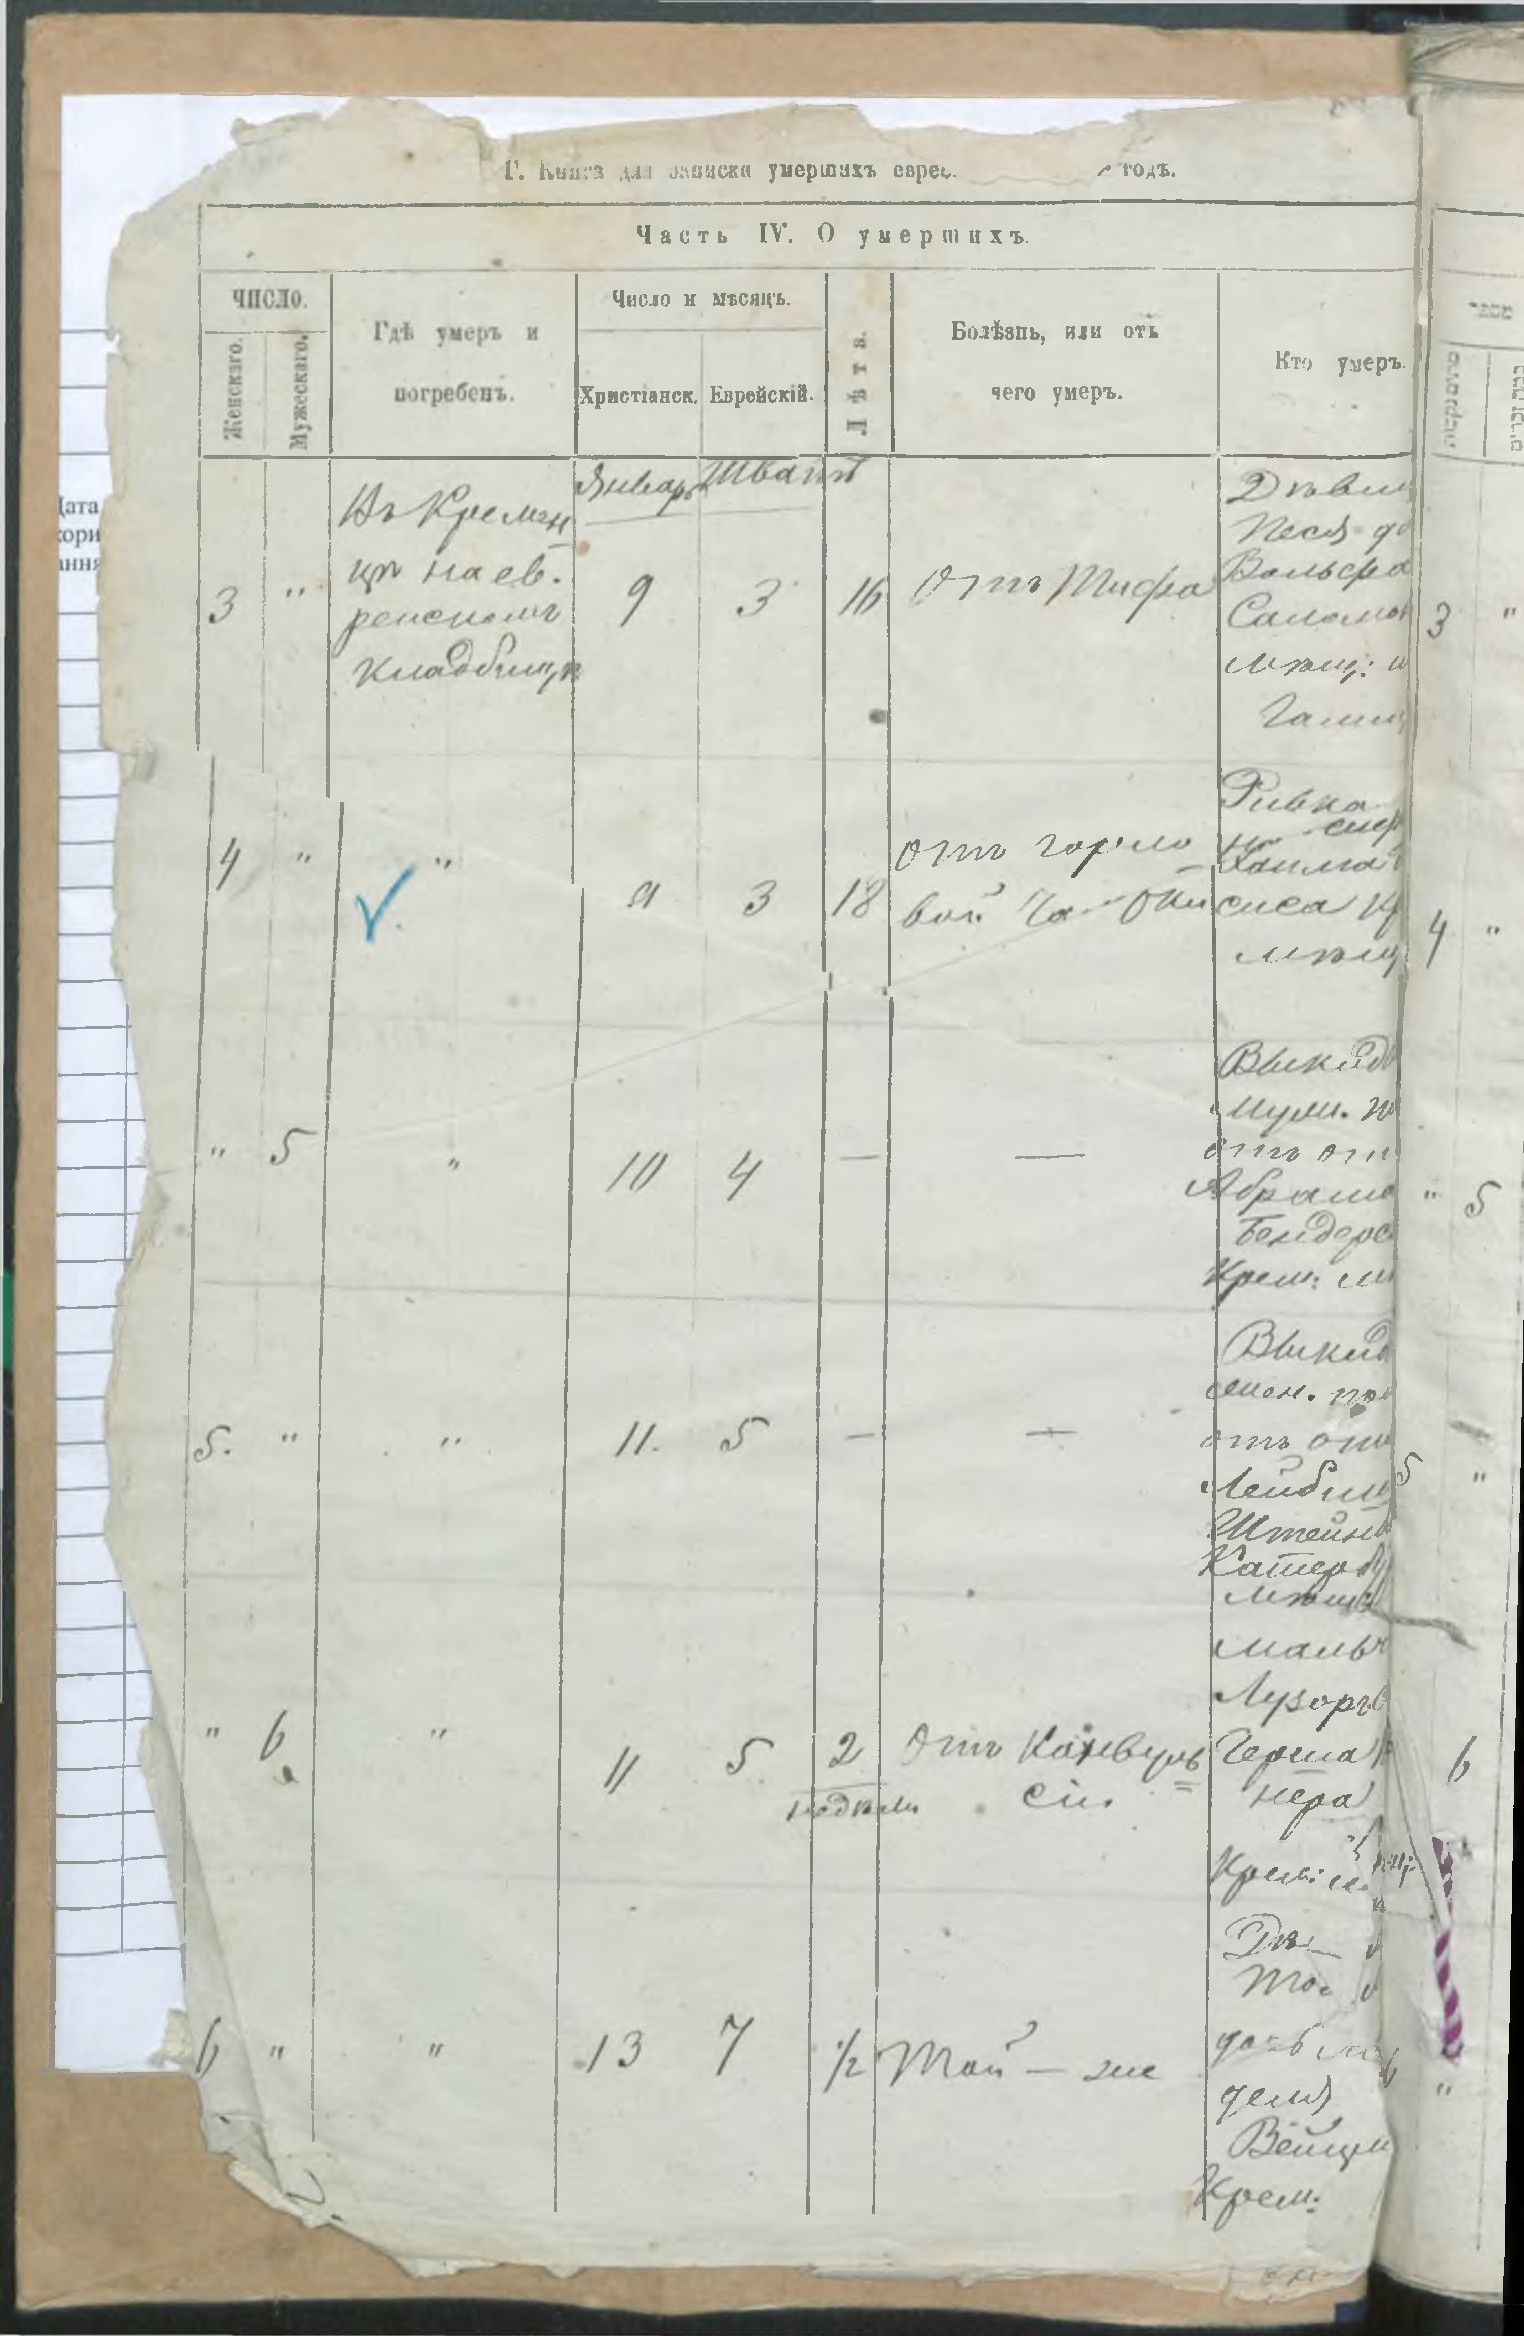 Г. Книга для записки умершихъ еврее годъ.
Часть IV. О умершихъ.
ЧИСЛО.
Женскаго.
Мужескаго.
Гдѣ умеръ и
погребенъ.
Число и мѣсяцъ.
Христіанск.
Еврейскій.
Лѣта.
Болѣзнь, или отъ
чего умеръ.
Кто умеръ.
Январь Шватъ
3 "
Въ Кремен
цѣ на ев.
рейскомъ
кладбищѣ
9 3 16
Отъ Тифа
Дѣви
Песя до
Вольфа
Саломон
мѣщ:
Галиц
3 "
4 " "
9 3 18
отъ горло
вой
Ривка
Хаима
сиса Кр
мѣщ
4 "
" 5 "
10 4 — —
Выкид
муж. по
отъ от
Абрама
Бендерс
Крем: м
" 5
5. " "
11. 5 — —
Выкид
жен. пол
отъ отц
Лейбиш
Штейнб
Катерб
мѣщ:
5 "
" 6 "
11 5 2
недѣли
Отъ Конвуль
сіи.
Мальч
Лузоръ
Герша
нера
Крем: м
6
6 " "
13 7 1/2
Той — же
дочь
деля
Вейцм
Крем:
6 "
Дата
кори
ання